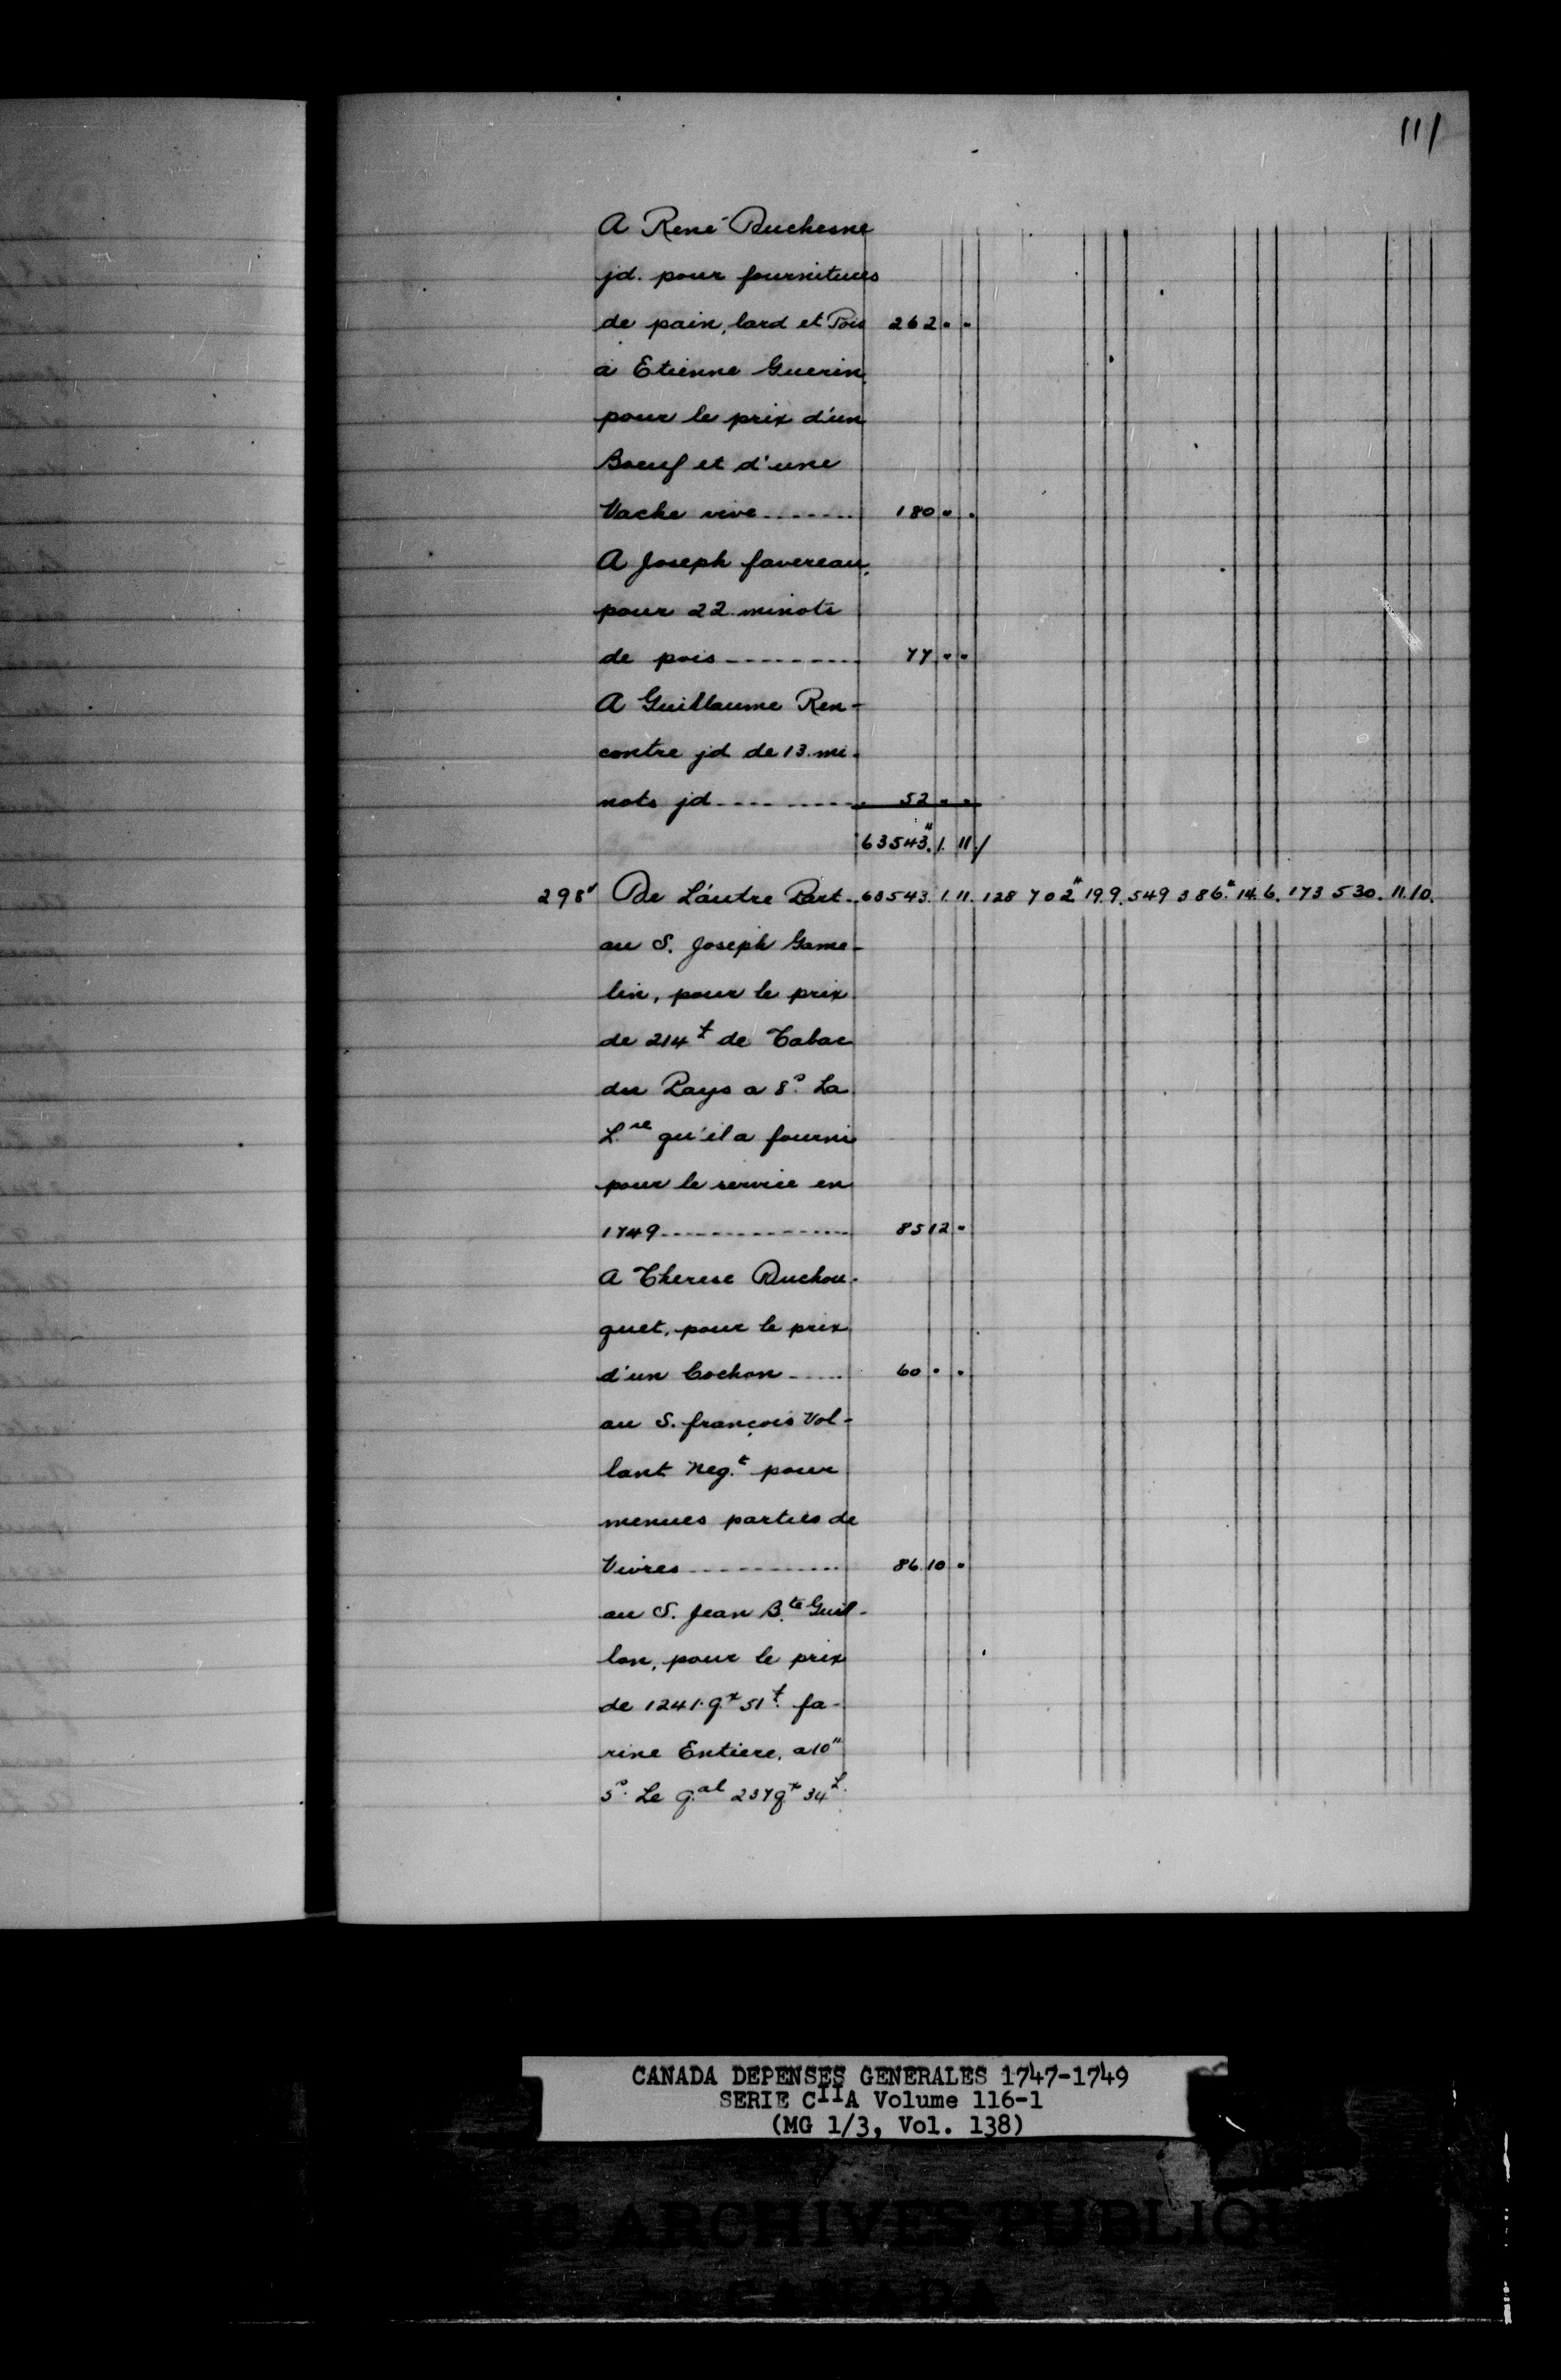 111
A René Duchesne
jd. pour fournitures
de pain, lard et Pois 262 " "
à Etienne Guerin
pour le prix d'un
Boeuf et d'une
Vache vive........ 180 " "
A Joseph favereau,
pour 22. minots
de pois.......... 77 " "
A Guillaume Ren-
contre jd de 13. mi-
nots jd.......... 52 " "
63543." 1. 11./
298v De L'autre Part..63543. 1. 11. 128 702." 19. 9. 549 386." 14. 6. 173 530. 11. 10.
au S. Joseph Game-
lin, pour le prix
de 214 t de Tabac
du Pays a 8 s. La
L.re qu'il a fourni
pour le service en
1749.......... 85 12 "
A Therese Duchou-
quet, pour le prix
d'un Cochon...... 60 " "
au S. françois Vol-
lant Neg.t pour
menues parties de
Vivres.......... 86 10 "
au S. Jean B.te Guil-
lon, pour le prix
de 1241. qx 51 t. fa-
rine Entiere, a 10"
5 s. Le q.al 237 qx 34 L.
CANADA DEPENSES GENERALES 1747-1749
SERIE CIIA Volume 116-1
(MG 1/3, Vol. 138)
ARCHIVES PUBLIQ